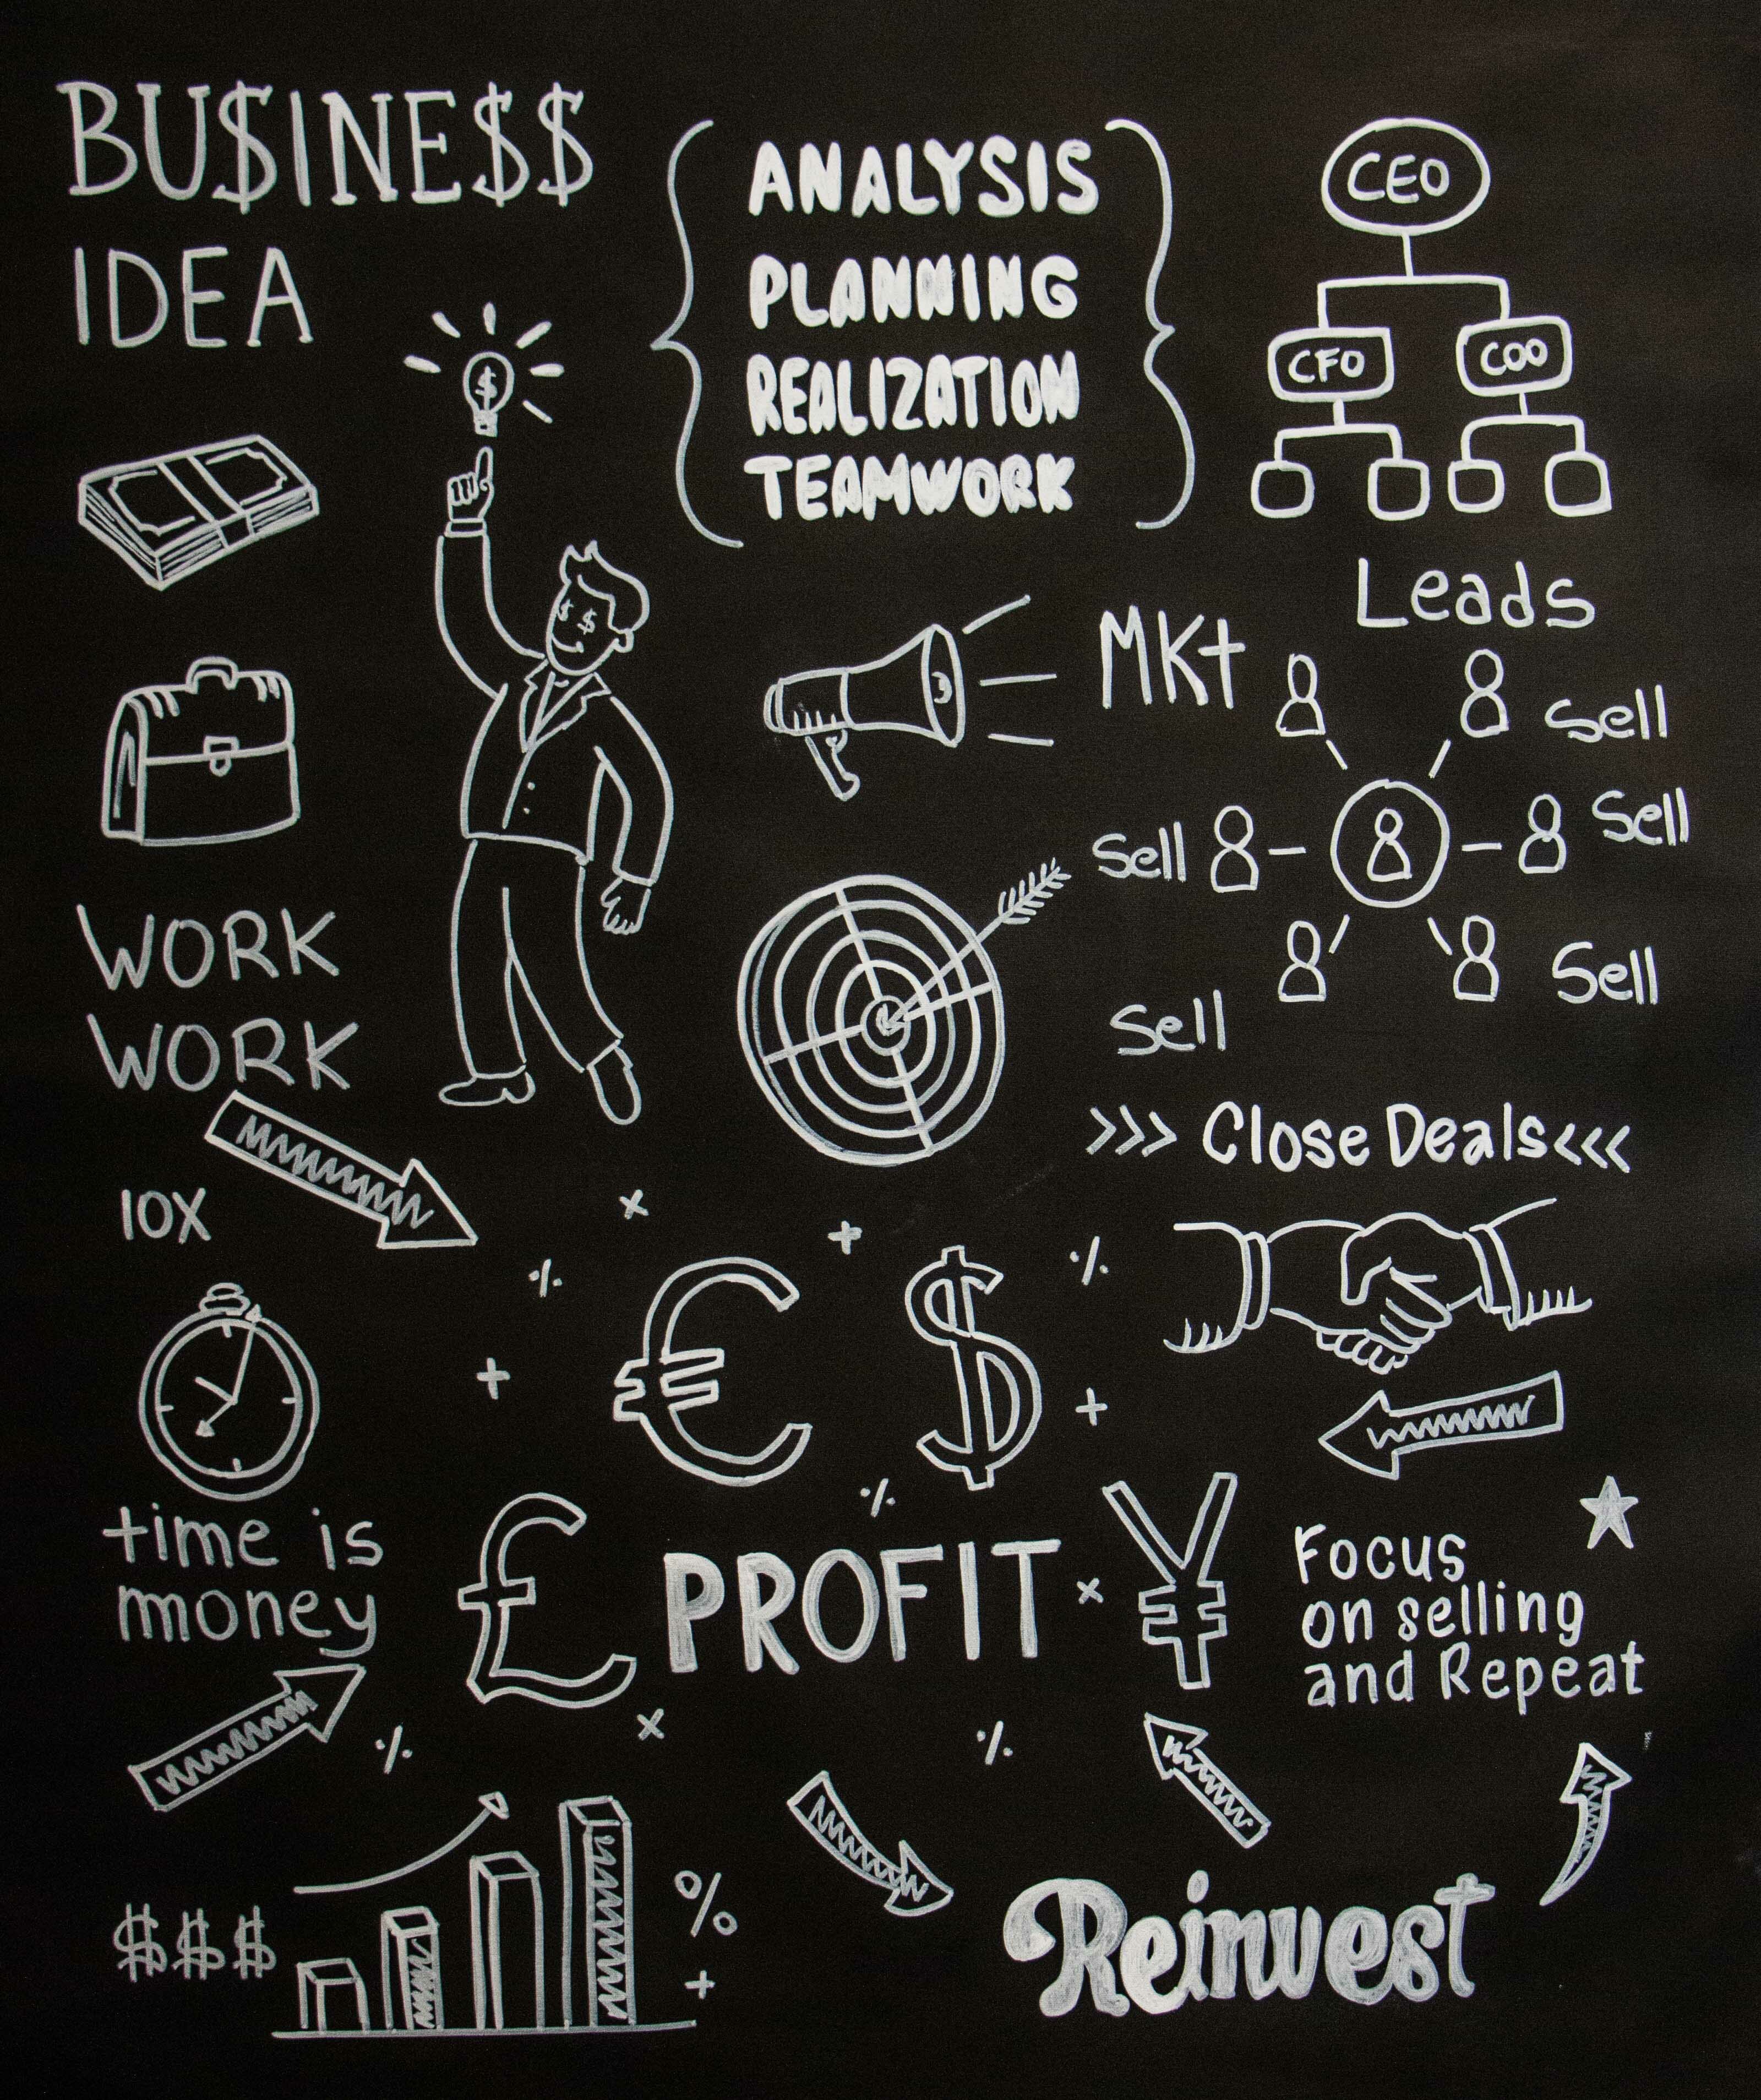 BU$INE$$
IDEA
$
$ $
ANALYSIS
PLANNING
REALIZATION
TEAMWORK
CEO
CFO
COO
Leads
MKt
Sell
Sell
Sell
Sell
Sell
WORK
WORK
10X
>>> Close Deals <<<
x
+
%
%
+
€ $
+
%
time is
money
£ PROFIT x ¥
Focus
on selling
and Repeat
%
x
%
$$$
%
+
Reinvest